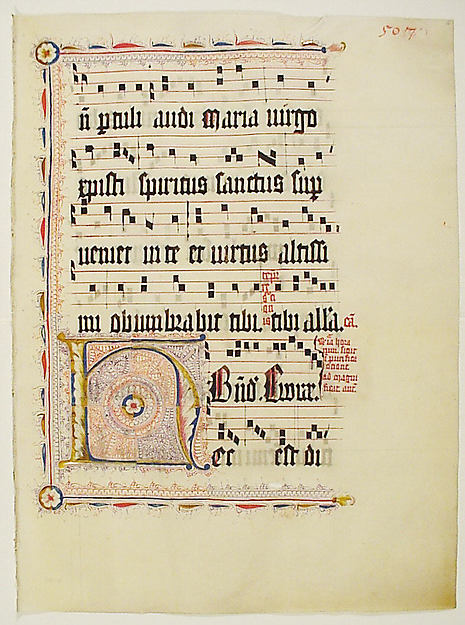 507
ñ ꝑtuli audi maria uirgo
xpisti spiritus sanctus sup
ueniet in te et uirtus altissi
mi obumbrabit tibi. tibi all'a. cã.
Bñõ. Euouae.
ad magni
ficat añt.
Hec est di